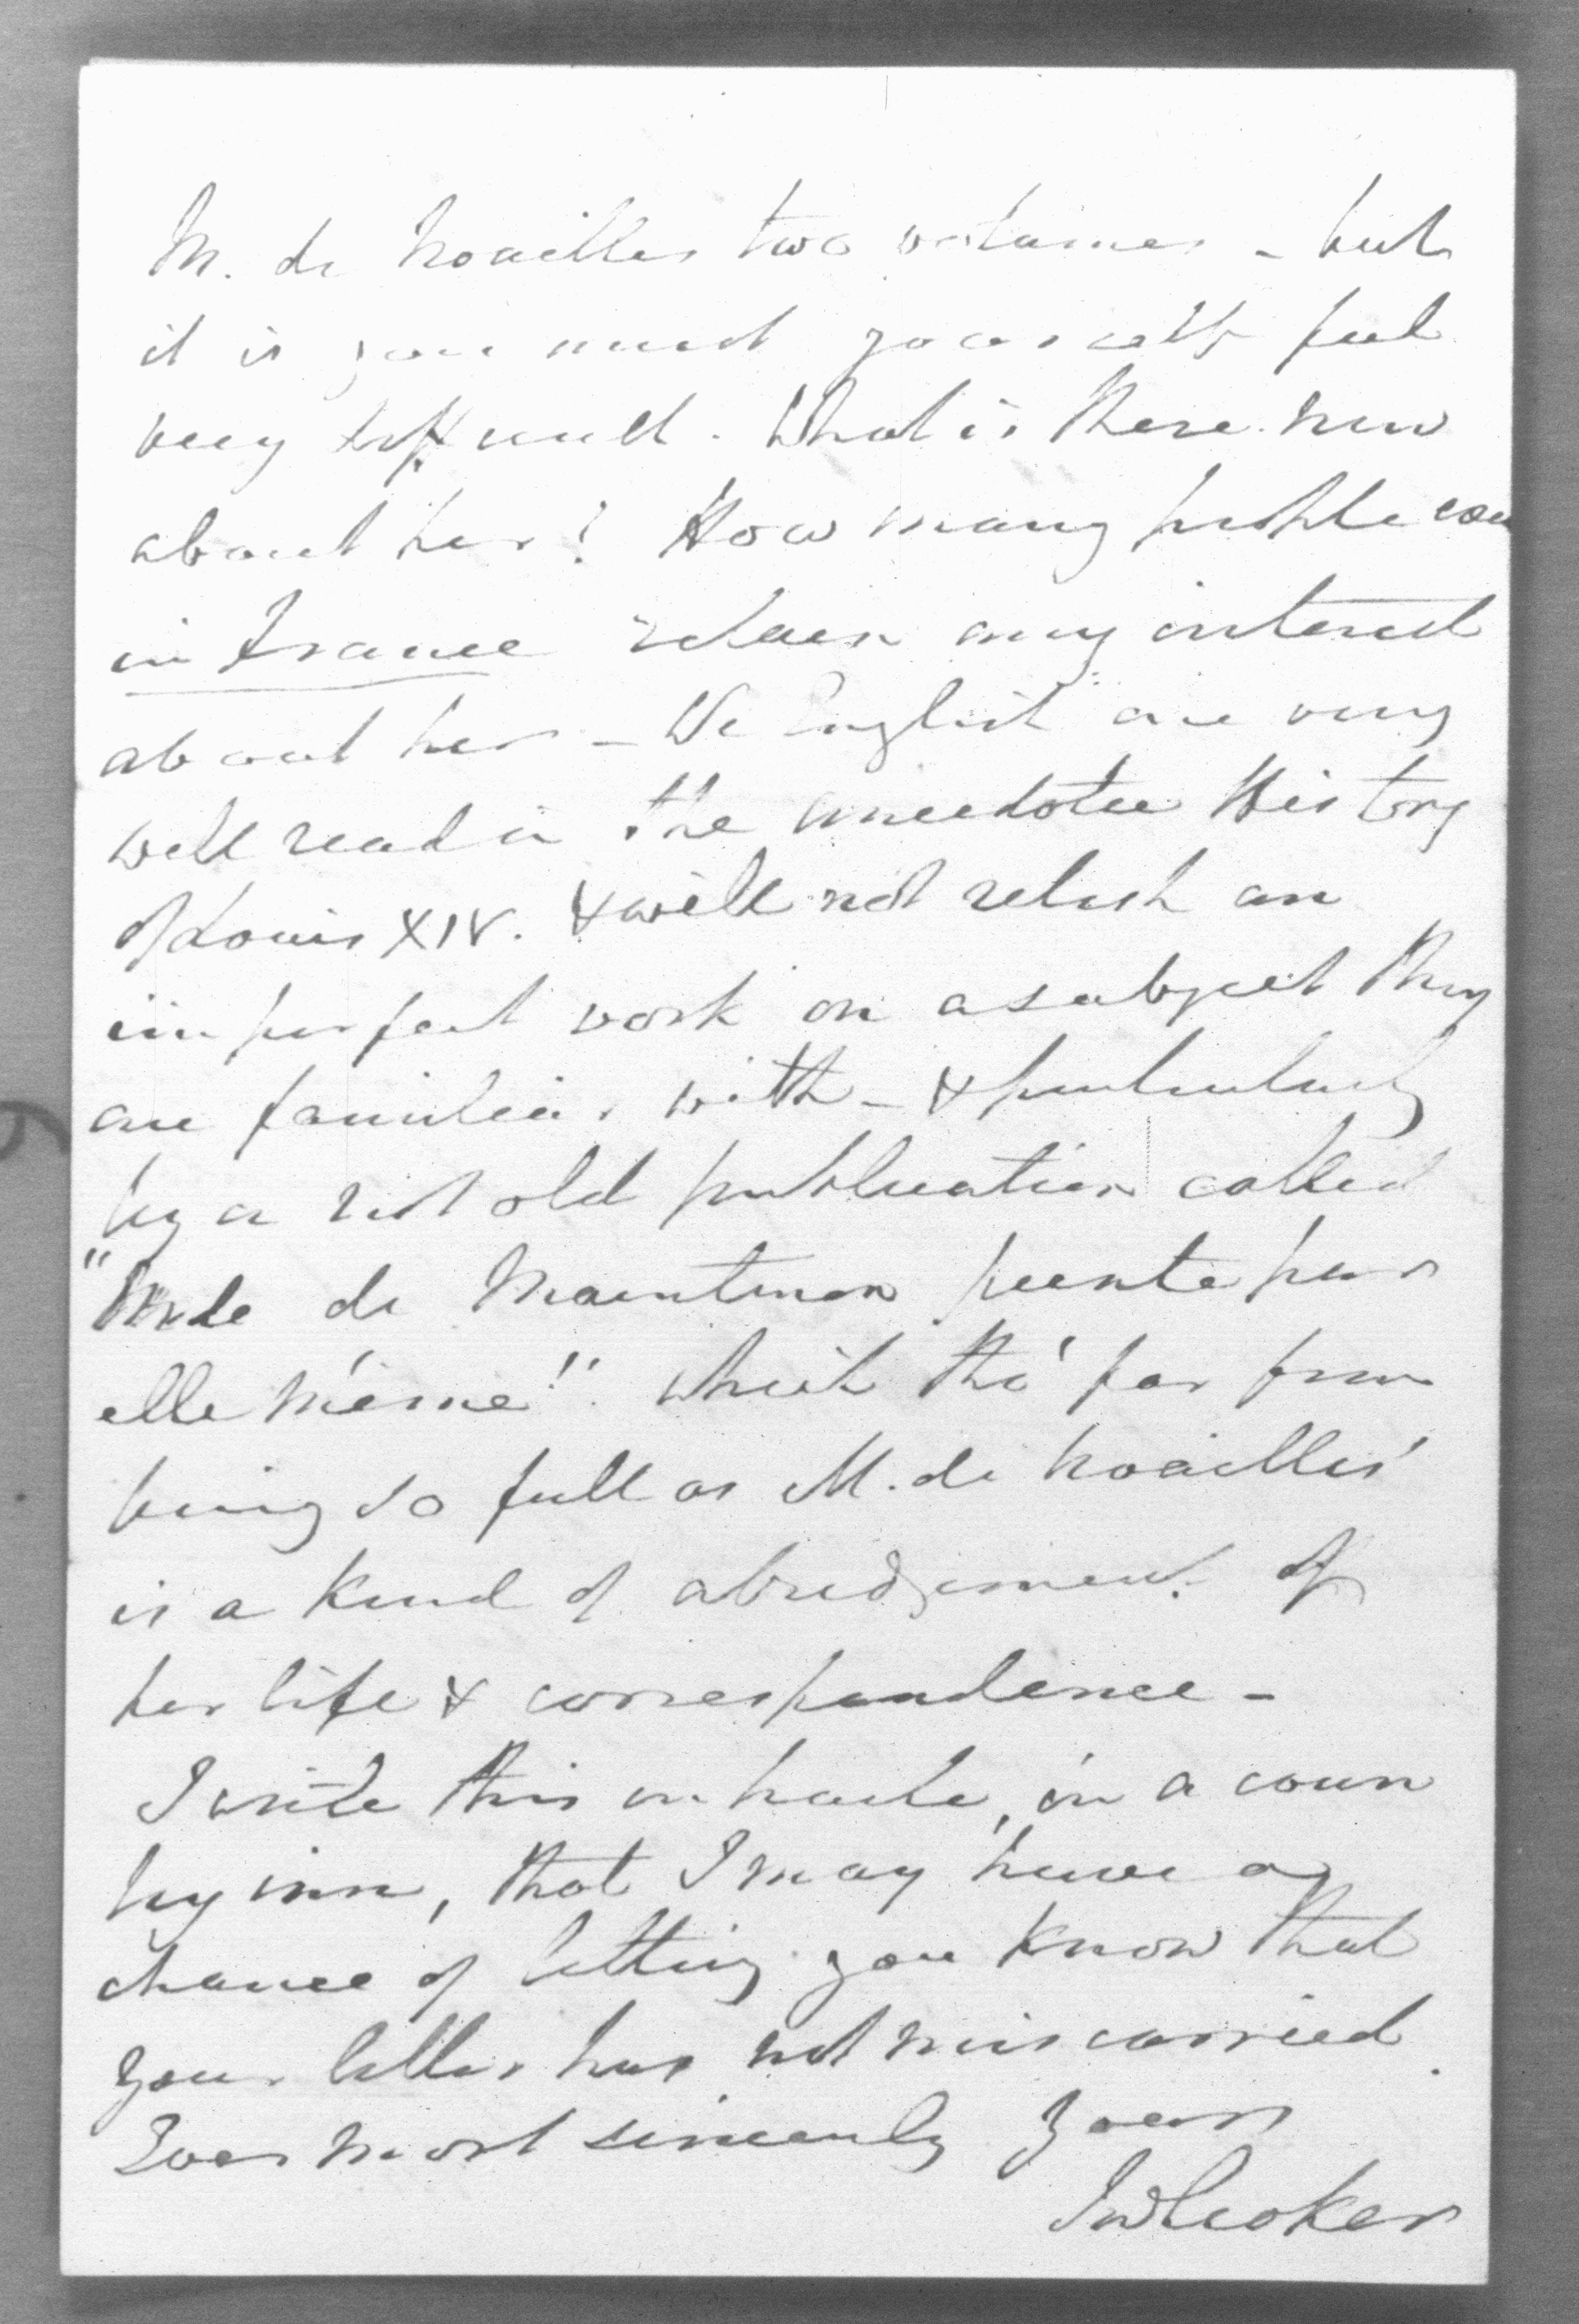 M. de Noailles two volumes - but
it is you must yourself feel
very difficult. What is there new
about her? How many people even
in France retain any interest
about her - We English are very
well read in the anecdote History
of Louis XIV. & will not relish an
imperfect work on a subject they
are familiar with - & particularly
by a not old publication called
"Mde de Maintenon peinte par
elle même". which tho' far from
being so full as M. de Noailles'
is a kind of abridgement of
her life & correspondence -
I write this in haste, in a coun
try inn, that I may have a
chance of letting you know that
your letter has not miscarried.
Ever most sincerely yours
JWCroker